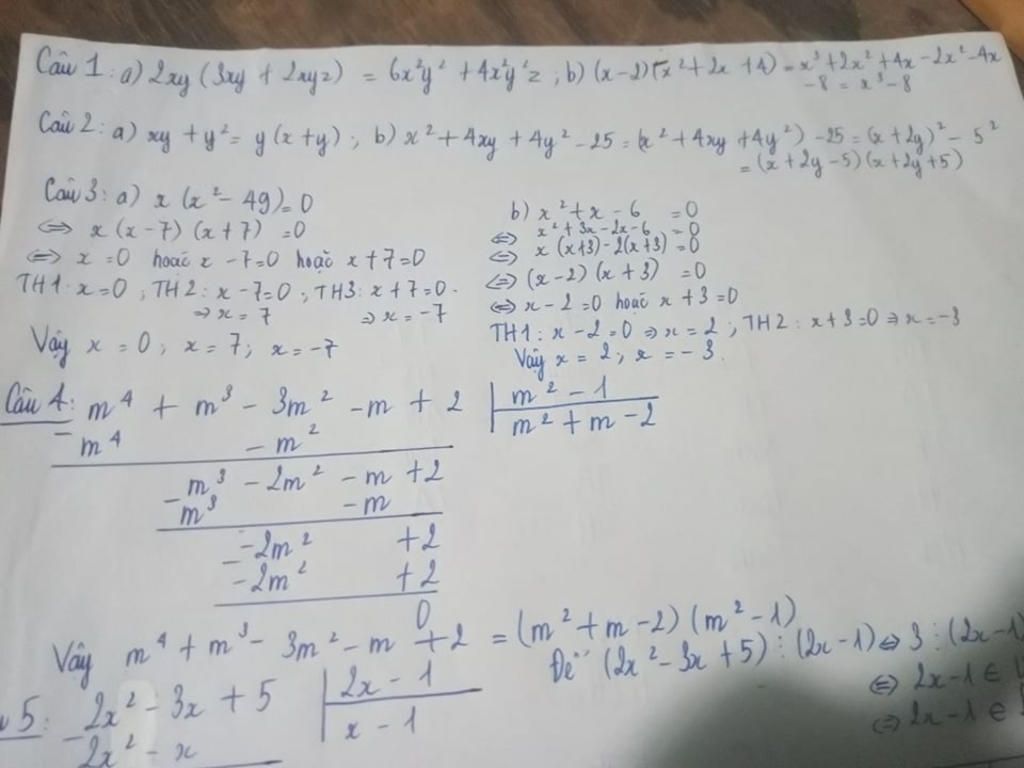 Câu 1: a) 2xy (3xy + 2xyz) = 6x²y² + 4x²y²z ; b) (x-2)(x²+2x+4) = x³+2x²+4x-2x²-4x
-8 = x³-8
Câu 2: a) xy + y² = y(x+y) ; b) x² + 4xy + 4y² - 25 = (x² + 4xy + 4y²) - 25 = (x+2y)² - 5²
= (x+2y-5)(x+2y+5)
Câu 3: a) x (x² - 49) = 0
⇔ x(x-7)(x+7) = 0
⇔ x = 0 hoặc x - 7 = 0 hoặc x + 7 = 0
TH1: x = 0 ; TH2: x - 7 = 0 ; TH3: x + 7 = 0.
⇒ x = 7 ⇒ x = -7
Vậy x = 0 ; x = 7 ; x = -7
b) x² + x - 6 = 0
⇔ x² + 3x - 2x - 6 = 0
⇔ x(x+3) - 2(x+3) = 0
⇔ (x-2)(x+3) = 0
⇔ x - 2 = 0 hoặc x + 3 = 0
TH1: x - 2 = 0 ⇒ x = 2 ; TH2: x + 3 = 0 ⇒ x = -3
Vậy x = 2 ; x = -3.
Câu 4: m⁴ + m³ - 3m² - m + 2 | m² - 1
- m⁴ - m² | m² + m - 2
m³ - 2m² - m + 2
- m³ - m
-2m² + 2
- -2m² + 2
0
Vậy m⁴ + m³ - 3m² - m + 2 = (m² + m - 2)(m² - 1)
5: 2x² - 3x + 5 | 2x - 1
- 2x² - x | x - 1
Để (2x² - 3x + 5) ⋮ (2x - 1) ⇔ 3 ⋮ (2x - 1)
⇔ 2x - 1 ∈
⇔ 2x - 1 ∈